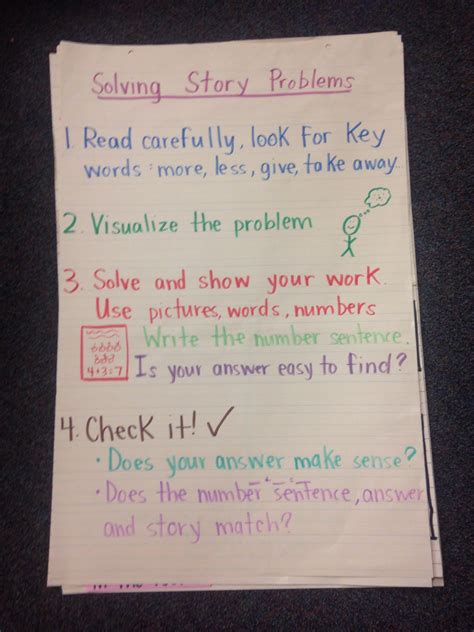 Solving Story Problems
1. Read carefully, look for Key
words: more, less, give, take away
2. Visualize the problem
3. Solve and show your work.
Use pictures, words, numbers
Write the number sentence.
4+3=7
Is your answer easy to find?
4. Check it! ✓
• Does your answer make sense?
• Does the number sentence, answer
and story match?